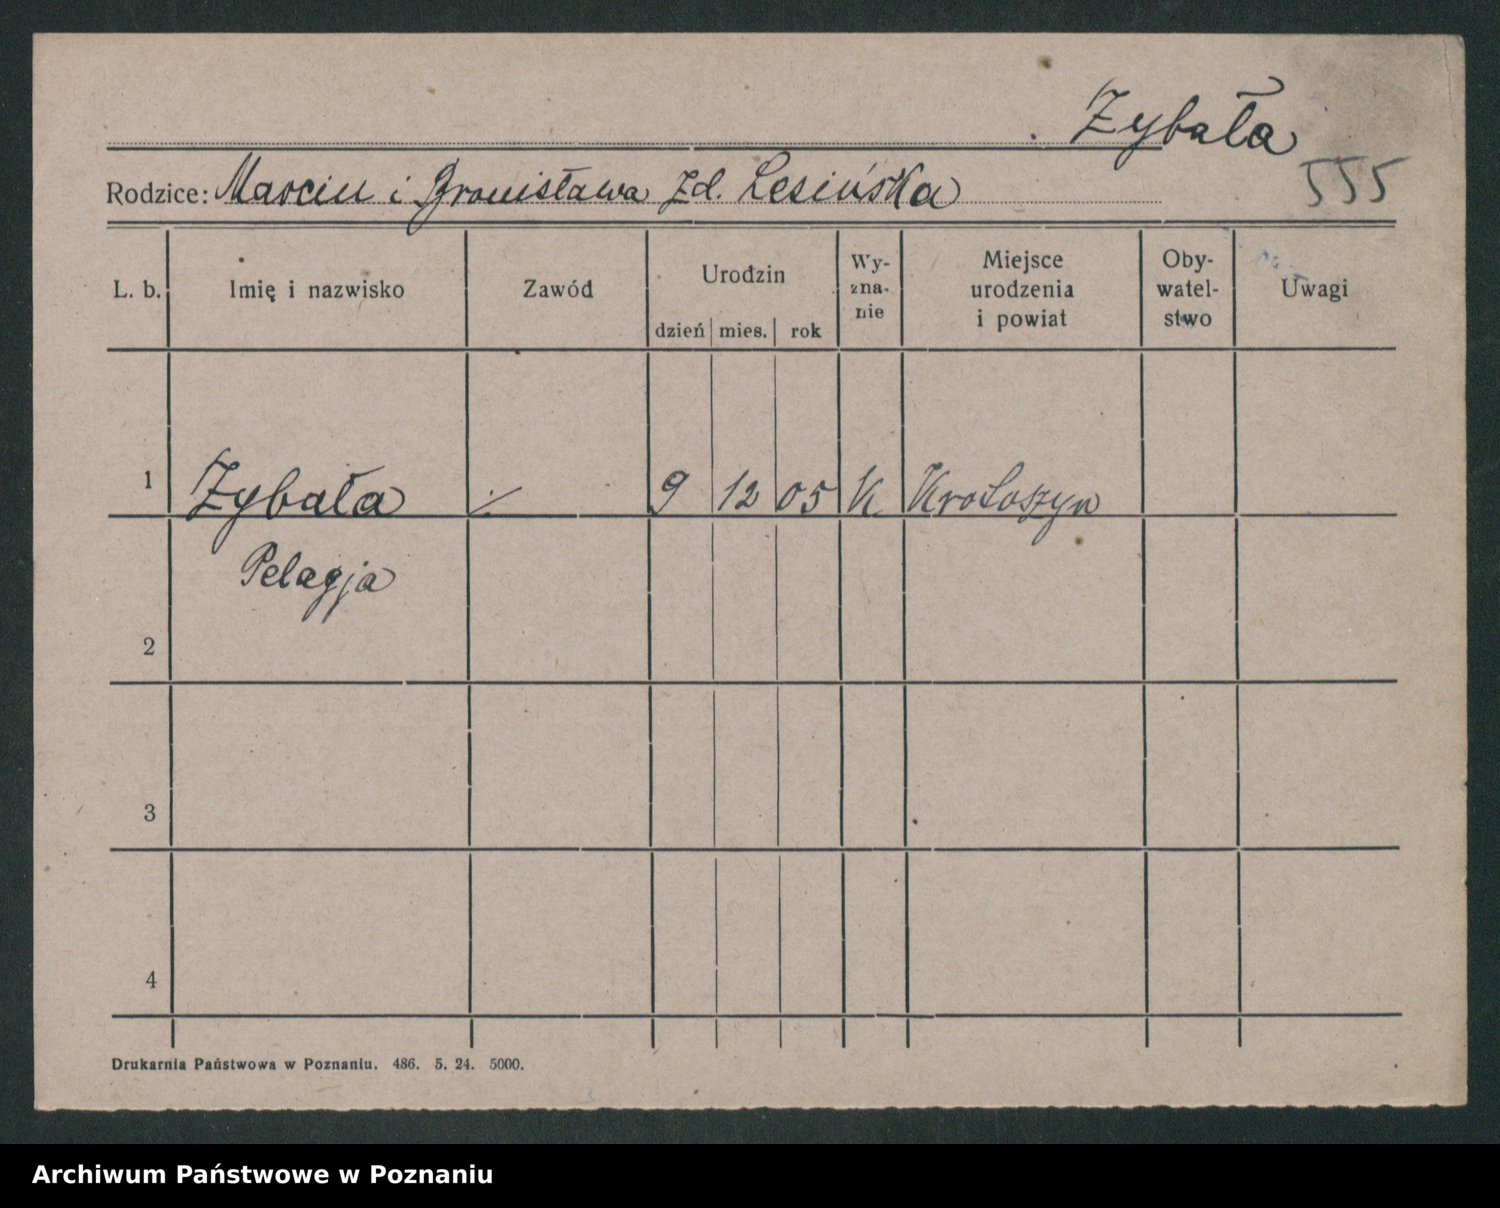 Zybała
555
Rodzice: Marcin i Bronisława zd. Lesińska
L. b. Imię i nazwisko Zawód Urodzin dzień mies. rok Wy-zna-nie Miejsce urodzenia i powiat Oby-watel-stwo Uwagi
1 Zybała ⁒ 9 12 05 K Krotoszyn
Pelagja
2
3
4
Drukarnia Państwowa w Poznaniu. 486. 5. 24. 5000.
Archiwum Państwowe w Poznaniu